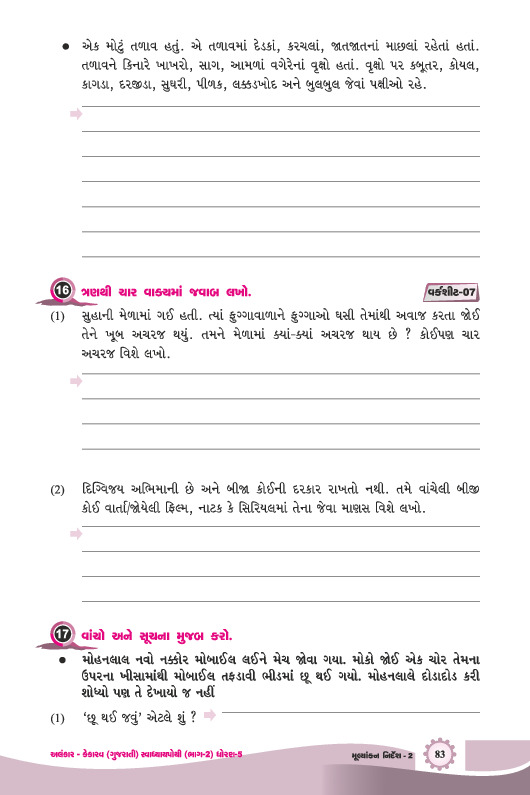 ● એક મોટું તળાવ હતું. એ તળાવમાં દેડકાં, કરચલાં, જાતજાતનાં માછલાં રહેતાં હતાં.
તળાવને કિનારે ખાખરો, સાગ, આમળાં વગેરેનાં વૃક્ષો હતાં. વૃક્ષો પર કબૂતર, કોયલ,
કાગડા, દરજીડા, સુઘરી, પીળક, લક્કડખોદ અને બુલબુલ જેવાં પક્ષીઓ રહે.
16 ત્રણથી ચાર વાક્યમાં જવાબ લખો. વર્કશીટ-07
(1) સુહાની મેળામાં ગઈ હતી. ત્યાં ફુગ્ગાવાળાને ફુગ્ગાઓ ઘસી તેમાંથી અવાજ કરતા જોઈ
તેને ખૂબ અચરજ થયું. તમને મેળામાં ક્યાં-ક્યાં અચરજ થાય છે ? કોઈપણ ચાર
અચરજ વિશે લખો.
(2) દિગ્વિજય અભિમાની છે અને બીજા કોઈની દરકાર રાખતો નથી. તમે વાંચેલી બીજી
કોઈ વાર્તા/જોયેલી ફિલ્મ, નાટક કે સિરિયલમાં તેના જેવા માણસ વિશે લખો.
17 વાંચો અને સૂચના મુજબ કરો.
● મોહનલાલ નવો નક્કોર મોબાઈલ લઈને મેચ જોવા ગયા. મોકો જોઈ એક ચોર તેમના
ઉપરના ખીસામાંથી મોબાઈલ તફડાવી ભીડમાં છૂ થઈ ગયો. મોહનલાલે દોડાદોડ કરી
શોધ્યો પણ તે દેખાયો જ નહીં
(1) ‘છૂ થઈ જવું’ એટલે શું ?
અલંકાર - કેકારવ (ગુજરાતી) સ્વાધ્યાયપોથી (ભાગ-2) ધોરણ-5 મૂલ્યાંકન નિર્દેશ - 2 83